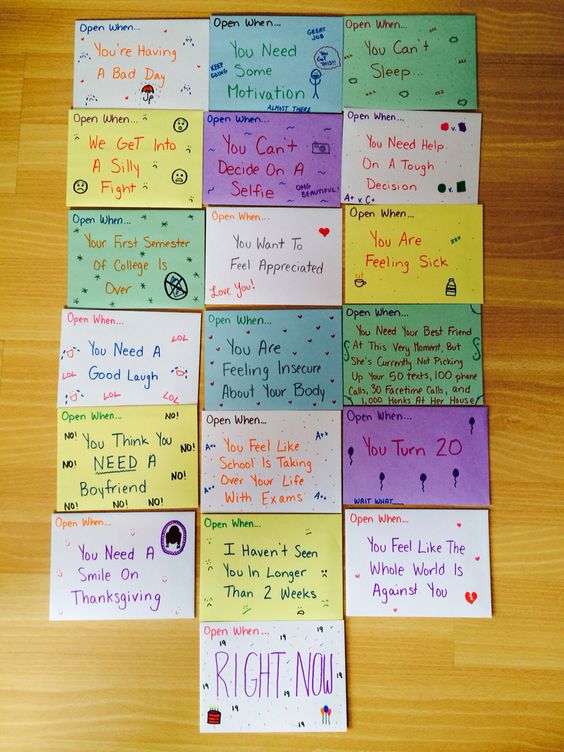 Open When...
You're Having
A Bad Day
Open When...
GREAT
JOB
You Need
Some
Motivation
KEEP
GOING
YOU
GOT
THIS!!
ALMOST THERE
Open When...
You Can't
Sleep...
Open When...
We Get Into
A Silly
Fight
Open When...
You Can't
Decide On A
Selfie
OMG
BEAUTIFUL!
Open When...
v.
You Need Help
On A Tough
Decision
v.
A+ v. C+
Open When...
Your First Semester
Of College Is
Over
Open When...
You Want To
Feel Appreciated
Love You!
Open When...
You Are
Feeling Sick
Open When...
LOL
You Need A
Good Laugh
LOL
LOL
LOL
LOL
Open When...
You Are
Feeling Insecure
About Your Body
Open When...
You Need Your Best Friend
At This Very Moment, But
She's Currently Not Picking
Up Your 50 texts, 100 phone
Calls, 30 Facetime Calls, and
1,000 Honks At Her House
Open When...
NO!
NO!
You Think You
NEED A
Boyfriend
NO!
NO!
NO!
NO!
NO!
NO!
Open When...
A++
A++
You Feel Like
School Is Taking
Over Your Life
With Exams
A++
A++
Open When...
You Turn 20
WAIT WHAT
Open When...
You Need A
Smile On
Thanksgiving
Open When...
I Haven't Seen
You In Longer
Than 2 Weeks
Open When...
You Feel Like The
Whole World Is
Against You
Open When...
19
19
19
RIGHT NOW
19
19
19